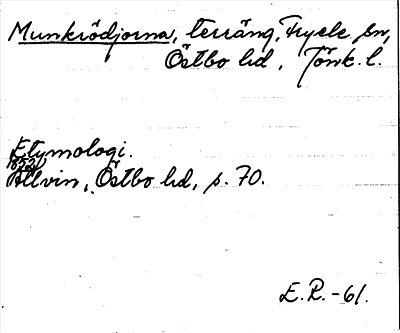 Munkrödjorna, terräng, Fryele sn,
Östbo hd, Jönk. l.
Etymologi.
1852)
Allvin, Östbo hd, p. 70.
E.R.-61.